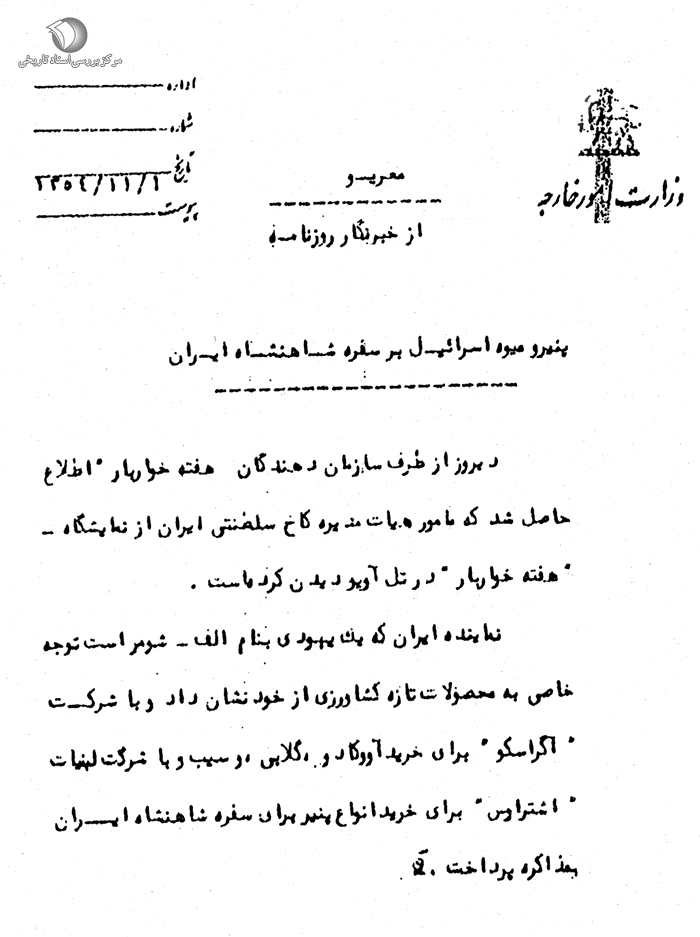 مرکز بررسی اسناد تاریخی
اداره
شماره
تاریخ ۱۳۵۴/۱۱/۱
پیوست
وزارت امور خارجه
معریو
از خبرنگار روزنامه
پنیر و میوه اسرائیل بر سفره شاهنشاه ایران
دیروز از طرف سازمان دهندگان هفته خواربار " اطلاع
حاصل شد که مامور هیات مدیره کاخ سلطنتی ایران از نمایشگاه -
" هفته خواربار " در تل آویو دیدن کرده‌است .
نماینده ایران که یك یهودی بنام الف - شومر است توجه
خاصی به محصولات تازه کشاورزی از خود نشان داد و با شرکت
" آگراسکو " برای خرید آووکادو ، گلابی ، و سیب و با شرکت لبنیات
" اشتراوس " برای خرید انواع پنیر برای سفره شاهنشاه ایران
بمذاکره پرداخت .